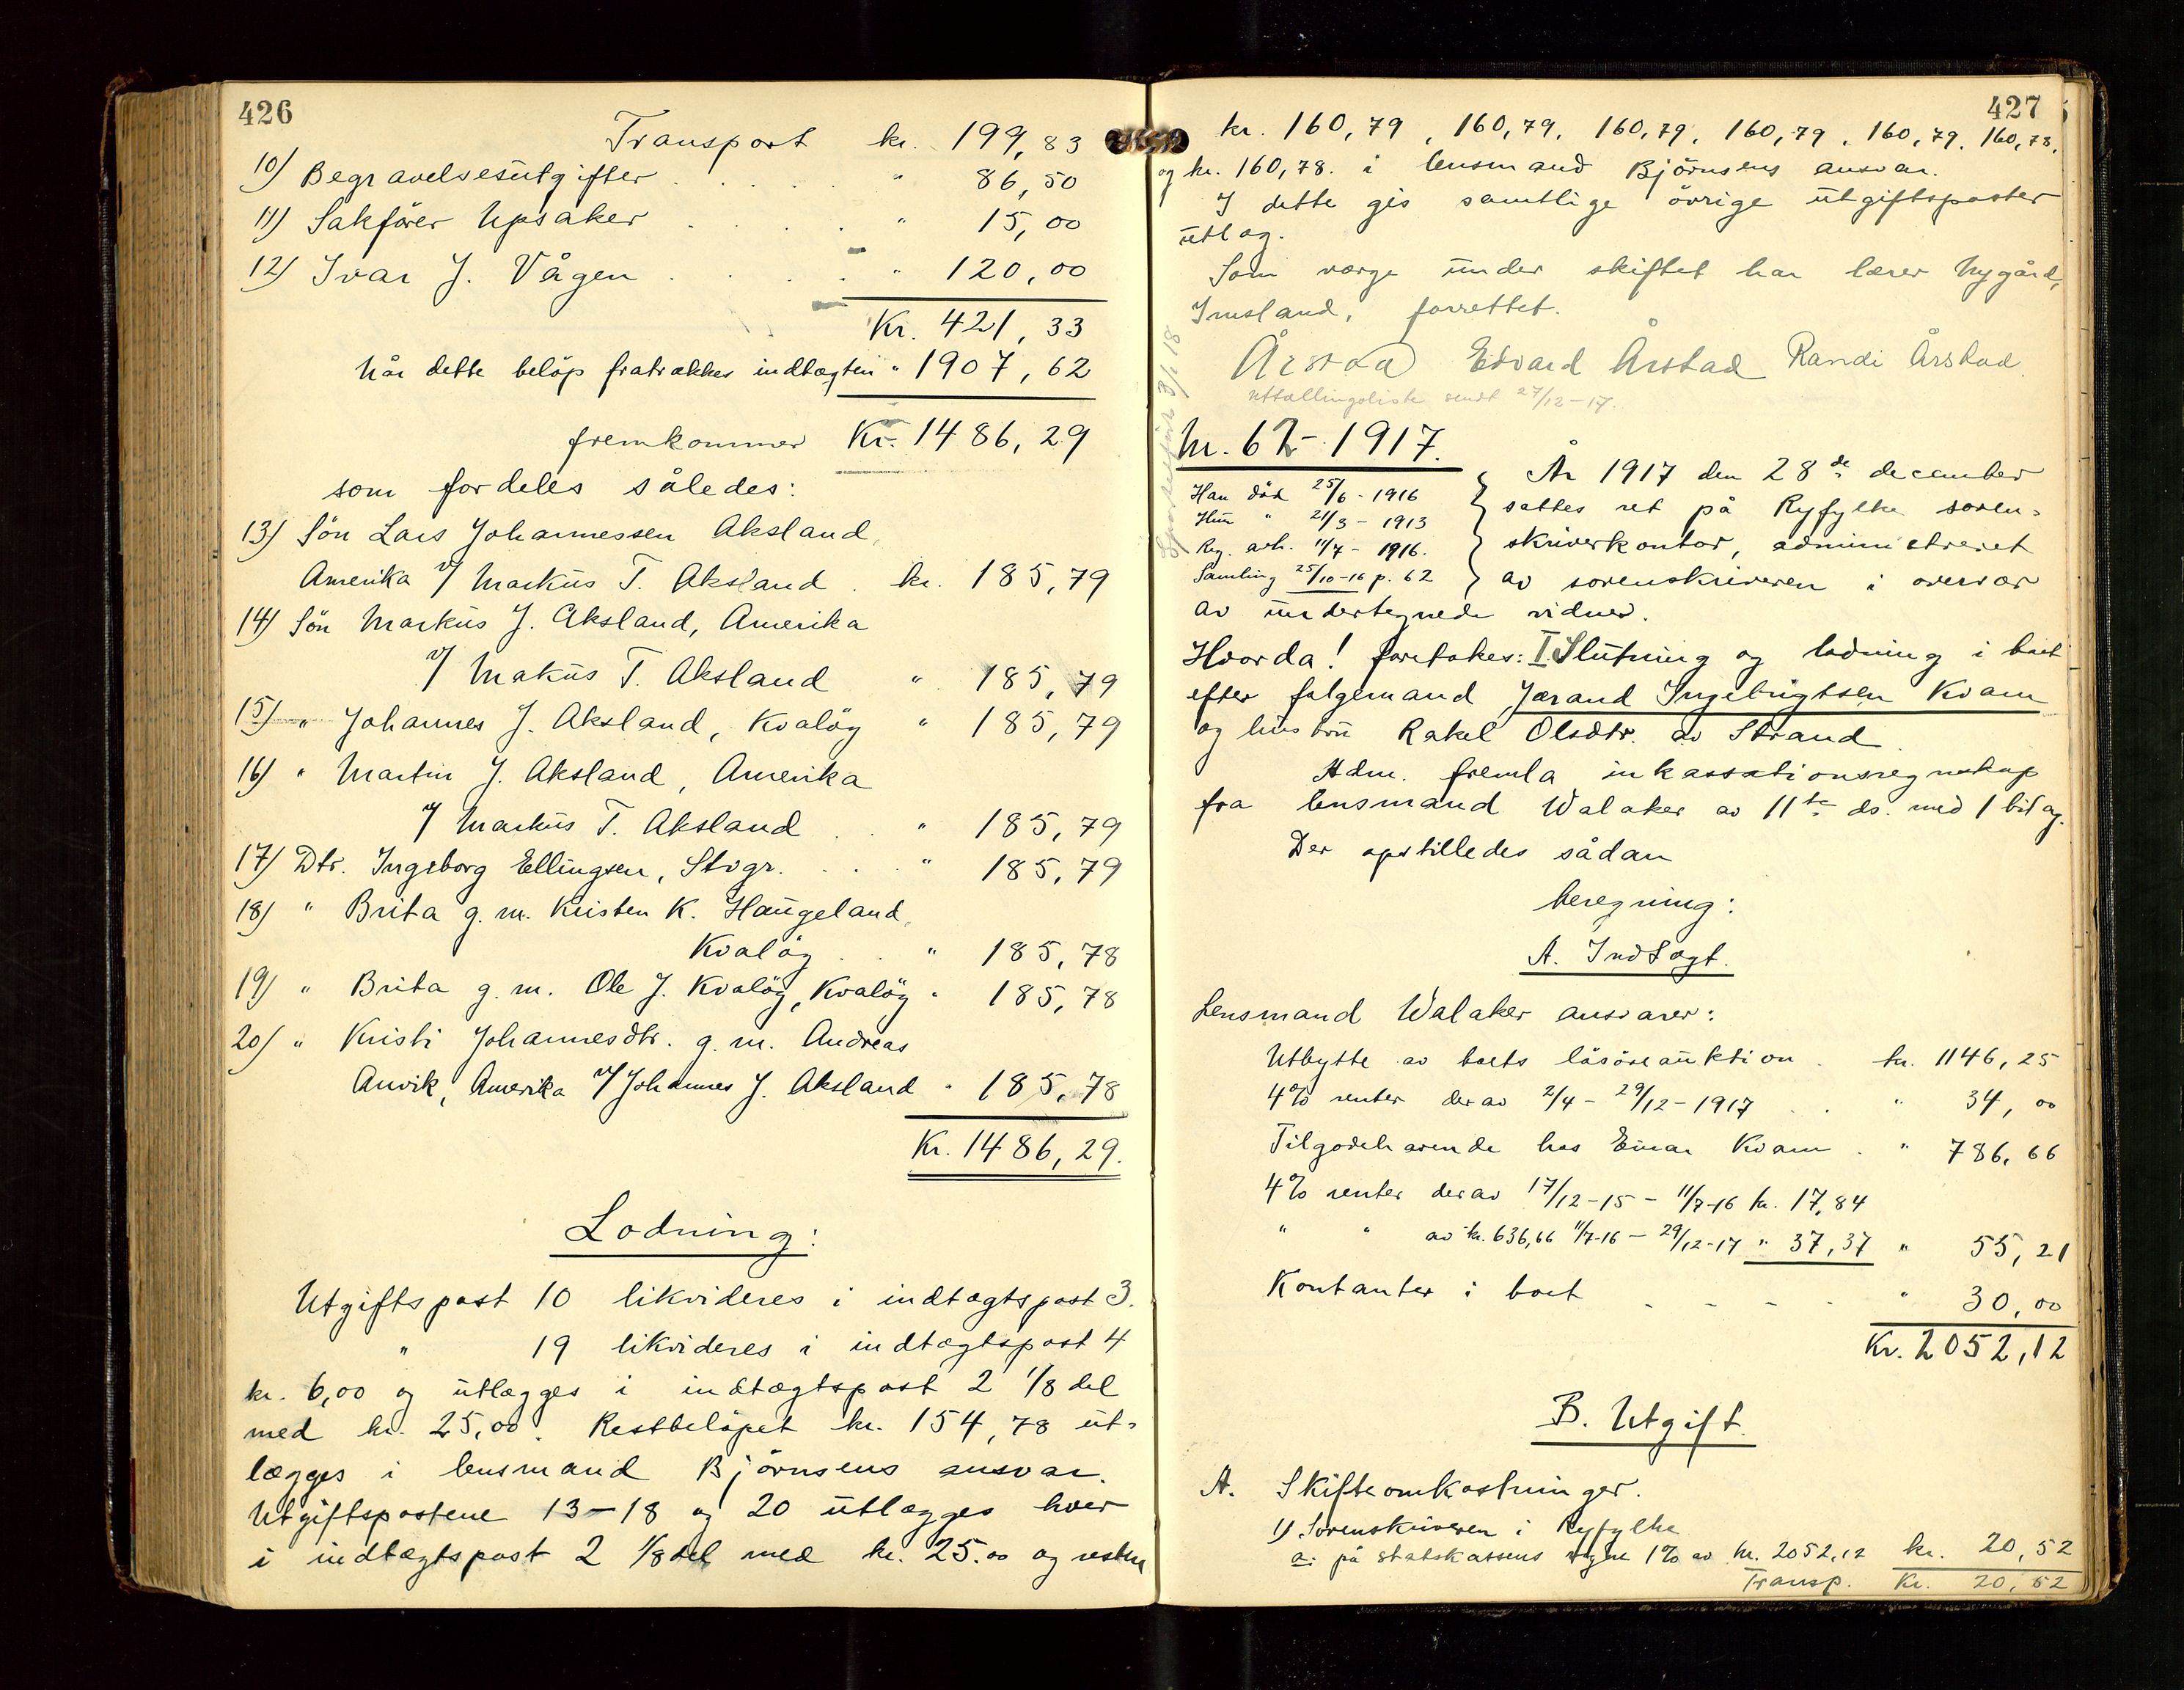 426
Transport kr. 199,83
10) Begravelsesutgifter . . . . . " 86,50
11) Sakförer Upsaker . . . . " 15,00
12) Ivar J. Vågen . . . . " 120,00
Kr. 421,33
Når dette belöp fratrækkes indtægten " 1907,62
fremkommer Kr. 1486,29
som fordeles således:
13) Sön Lars Johannessen Aksland,
Amerika v/ Markus T. Aksland . kr. 185,79
14) Sön Markus J. Aksland, Amerika
v/ Makus T. Aksland " 185,79
15) " Johannes J. Aksland, Kvalöy " 185,79
16) " Martin J. Aksland, Amerika
v/ Markus T. Aksland . . " 185,79
17) Dtr. Ingeborg Ellingsen, Stvgr. . . . " 185,79
18) " Brita g. m. Kristen K. Haugeland,
Kvalöy . . " 185,78
19) " Brita g. m. Ole J. Kvalöy, Kvalöy " 185,78
20) " Kristi Johannesdtr. g. m. Andreas
Anvik, Amerika v/ Johannes J. Aksland " 185,78
Kr. 1486,29.
Lodning:
Utgiftspost 10 likvideres i indtægtspost 3.
" 19 likvideres i indtægtspost 4
kr. 6,00 og utlægges i indtægtspost 2 1/8 del
med kr. 25,00. Restbelöpet kr. 154,78 ut-
lægges i lensmand Björnsens ansvar.
Utgiftspostene 13-18 og 20 utlægges hver
i indtægtspost 2 1/8 del med kr. 25.00 og resten
427
kr. 160,79, 160,79, 160,79, 160,79, 160,79, 160,78,
og kr. 160,78. i lensmand Björnsens ansvar.
I dette gis samtlige övrige utgiftsposter
utlæg.
Som værge under skiftet har lærer Nygård,
Imsland, forrettet.
Årstad Edvard Årstad Randi Årstad
Uttællingsliste sendt 27/12-17.
Nr. 62-1917.
Han död 25/6-1916
Hun " 21/3-1913
Reg. avh. 11/7-1916.
Samling 25/10-16 p. 62
År 1917 den 28de december
sattes ret på Ryfylke soren-
skriverkontor, administreret
av sorenskriveren i overvær
av undertegnede vidner.
Hvorda! foretokes: I Slutning og lodning i boet
efter følgemand Jærand Ingebrigtsen Kvam
og hustru Rakel Olsdtr. av Strand.
Adm. fremla inkassationsregnskap
fra lensmand Walaker av 11te ds. med 1 bilag.
Der opstilledes sådan
beregning:
A. Indtægt.
Lensmand Walaker ansvarer:
Utbytte av boets lösöreauktion . kr. 1146,25
4% renter derav 2/4 - 29/12-1917 . . " 34,00
Tilgodehavende hos Einar Kvam . " 786,66
4% renter derav 17/12-15 - 11/7-16 kr. 17,84
" " av kr. 636,66 11/7-16 - 29/12-17 " 37,37 " 55,21
Kontanter i boet - - - . " 30,00
Kr. 2052,12
B. Utgift.
A. Skifteomkostninger.
1) Sorenskriveren i Ryfylke
a: på statskassens vegne 1% av kr. 2052,12 kr. 20,52
Transp. Kr. 20,52